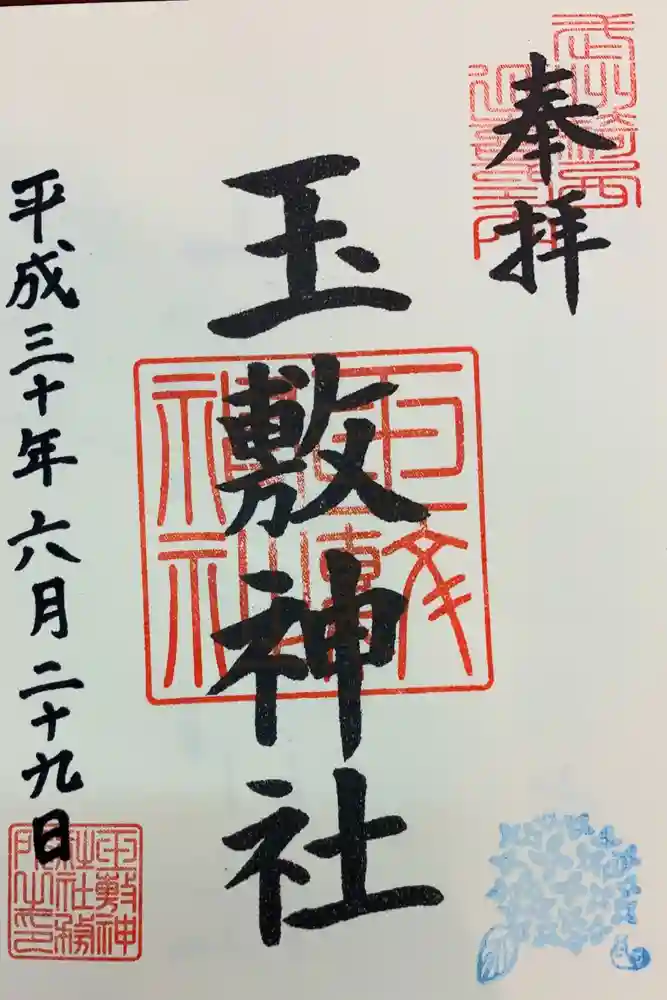 奉拝
玉敷神社
平成三十年六月二十九日
玉敷神
社社務
所之印